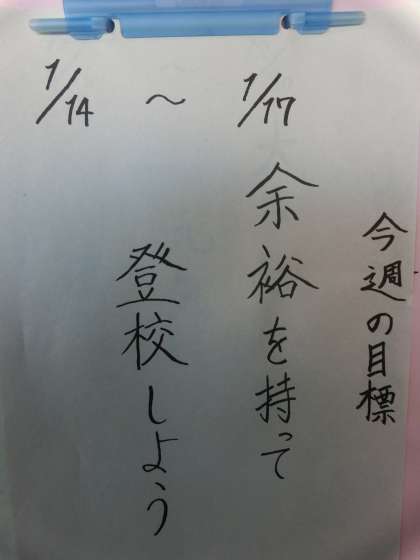 1/14 ～ 1/17
今週の目標
余裕を持って
登校しよう